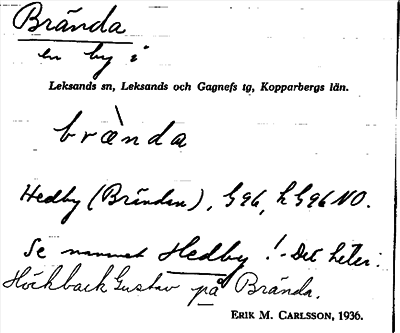 Brända
en by i
Leksands sn, Leksands och Gagnefs tg, Kopparbergs län.
brànda
Hedby (Brändan), G96, h G96 NO.
Se namnet Hedby! Det heter:
Höckback Gustav på Brända.
ERIK M. CARLSSON, 1936.